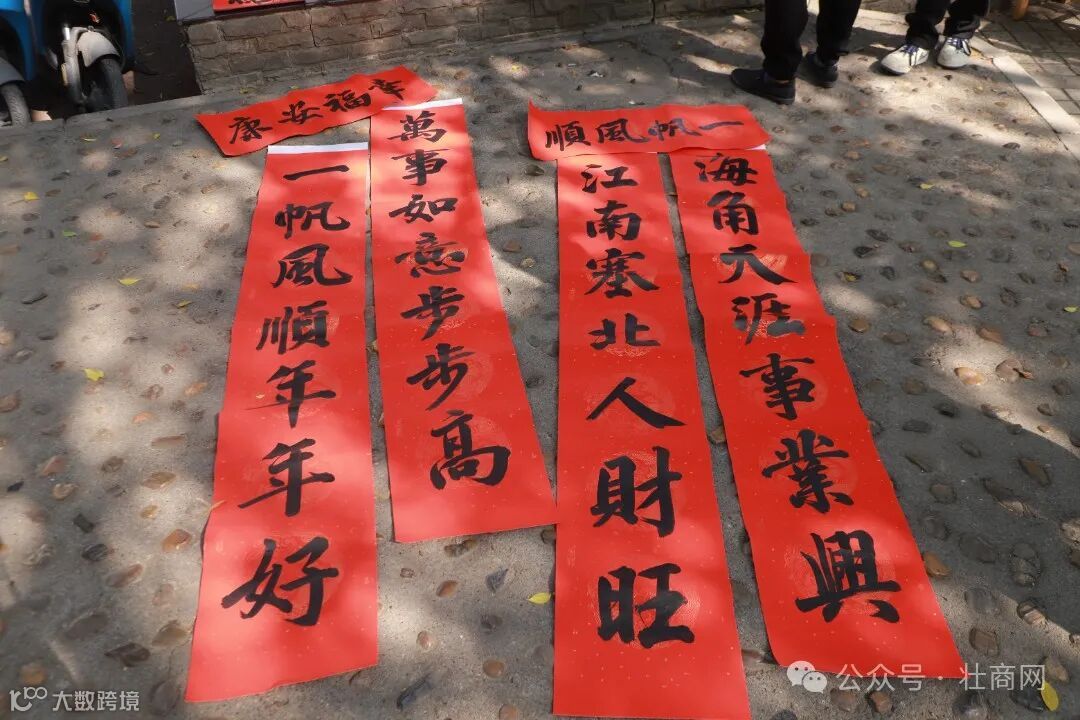 幸福安康
萬事如意步步高
一帆風順年年好
一帆風順
海角天涯事業興
江南塞北人財旺
大数跨境
公众号·壮商网